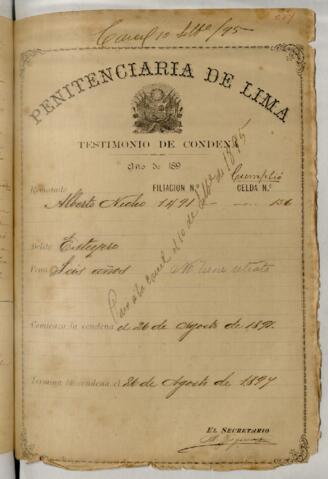 Carcel 10 Stbre/95
PENITENCIARIA DE LIMA
TESTIMONIO DE CONDENA
Año de 189
Cumplió
Rematado FILIACION N.º CELDA N.º
Alberto 1491 136
Delito Estupro
Pena Seis años
Pasó á la carcel el 10 de de 1895
Comienza la condena el 26 de Agosto de 1891.
Termina la condena el 26 de Agosto de 1897
EL SECRETARIO